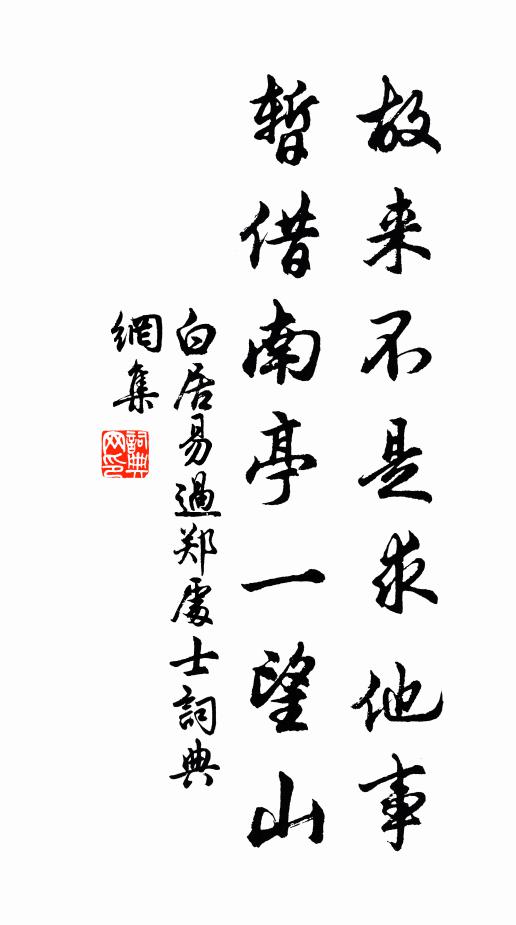 故来不是求他事
暫借南亭一望山
白居易過郑處士詞典
網集
詞典
网印